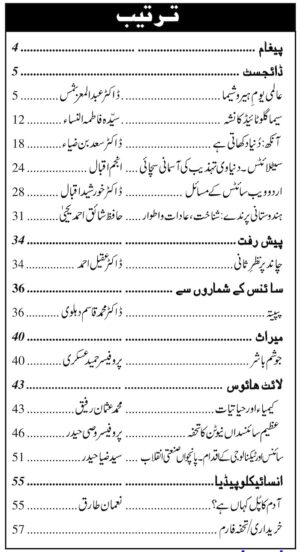 ترتیب
پیغام ........ 4
ڈائجسٹ ........ 5
عالمی یومِ ہیروشیما ........ ڈاکٹر عبدالمعز شمس ........ 5
سیما گلوٹائیڈ کا نشہ ........ سیّدہ فاطمہ النساء ........ 12
آنکھ: دُنیا دکھاتی ہے ........ ڈاکٹر سعد بن ضیاء ........ 18
سیٹلائٹس - دنیاوی تہذیب کی آسمانی سچائی ........ انجم اقبال ........ 24
اردو ویب سائٹس کے مسائل ........ ڈاکٹر خورشید اقبال ........ 28
ہندوستانی پرندے: شناخت، عادات و اطوار ........ حافظ شائق احمد یحییٰ ........ 31
پیش رفت ........ 34
چاند پر نظرِ ثانی ........ ڈاکٹر عقیل احمد ........ 34
سائنس کے شماروں سے ........ 36
پپیتہ ........ ڈاکٹر محمد قاسم دہلوی ........ 36
میراث ........ 40
جوشم باشر ........ پروفیسر حمید عسکری ........ 40
لائٹ ھاؤس ........ 43
کیمیاء اور حیاتیات ........ محمد عثمان رفیق ........ 43
عظیم سائنسداں نیوٹن کا تحفہ ........ پروفیسر وصی حیدر ........ 46
سائنس اور ٹیکنالوجی کے اقدام - پانچواں صنعتی انقلاب ........ سید ضیا حیدر ........ 51
انسائیکلوپیڈیا ........ 55
آدم کا پُل کہاں ہے؟ ........ نعمان طارق ........ 55
خریداری / تحفہ فارم ........ 57